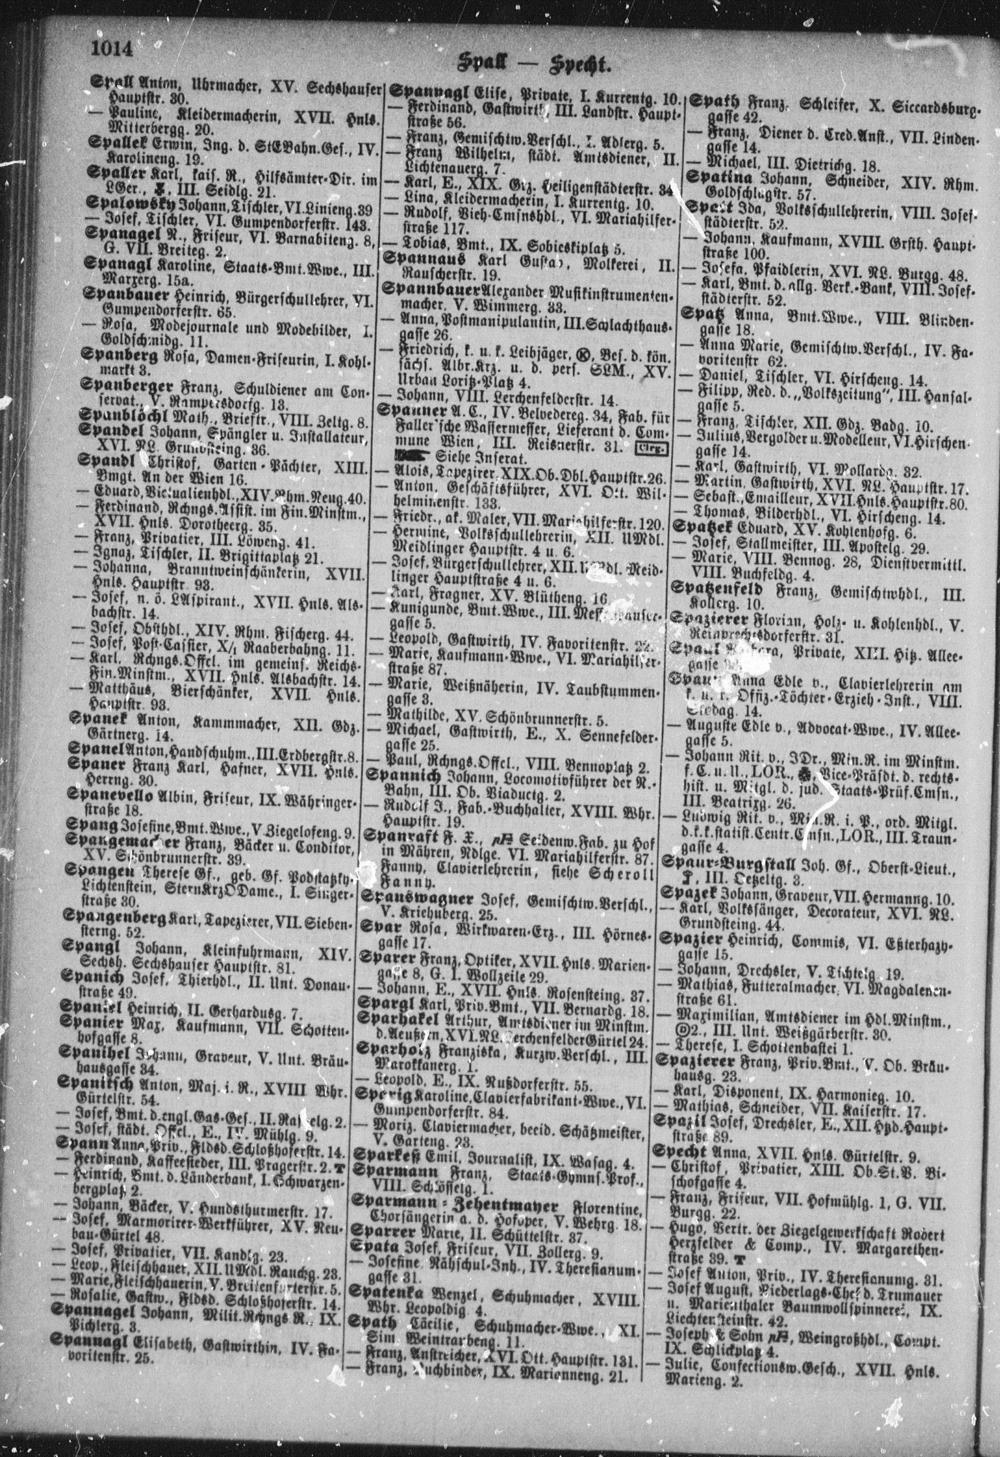 1014
Spall — Specht.
Spall Anton, Uhrmacher, XV. Sechshauser
Hauptstr. 30.
— Pauline, Kleidermacherin, XVII. Hnls.
Mitterbergg. 20.
Spallek Erwin, Ing. d. StEBahn.Ges., IV.
Karolineng. 19.
Spaller Karl, kais. R., Hilfsämter-Dir. im
LGer., III. Seidlg. 21.
Spalowsky Johann, Tischler, VI. Linieng. 39
— Josef, Tischler, VI. Gumpendorferstr. 143.
Spanagel R., Friseur, VI. Barnabiteng. 8,
G. VII. Breiteg. 2.
Spanagl Karoline, Staats-Bmt.Wwe., III.
Marxerg. 15a.
Spanbauer Heinrich, Bürgerschullehrer, VI.
Gumpendorferstr. 65.
— Rosa, Modejournale und Modebilder, I.
Goldschmidg. 11.
Spanberg Rosa, Damen-Friseurin, I. Kohl-
markt 3.
Spanberger Franz, Schuldiener am Con-
servat., V. Ramperstorffg. 13.
Spanblöchl Math., Briefstr., VIII. Zeltg. 8.
Spandel Johann, Spängler u. Installateur,
XVI. NL. Grundsteing. 36.
Spandl Christof, Garten-Pächter, XIII.
Bmgt. An der Wien 16.
— Eduard, Victualienhdl., XIV. Rhm. Neug. 40.
— Ferdinand, Rchngs.Assist. im Fin.Minstm.,
XVII. Hnls. Dorotheerg. 35.
— Franz, Privatier, III. Löweng. 41.
— Ignaz, Tischler, II. Brigittaplatz 21.
— Johanna, Branntweinschänkerin, XVII.
Hnls. Hauptstr. 93.
— Josef, n. ö. LAspirant., XVII. Hnls. Als-
bachstr. 14.
— Josef, Obsthdl., XIV. Rhm. Fischerg. 44.
— Josef, Post-Cassier, X/1 Raaberbahng. 11.
— Karl, Rchngs.Offcl. im gemeins. Reichs-
Fin.Minstm., XVII. Hnls. Alsbachstr. 14.
— Matthäus, Bierschänker, XVII. Hnls.
Hauptstr. 93.
Spanek Anton, Kammmacher, XII. Gdz.
Gärtnerg. 14.
Spanel Anton, Handschuhm., III. Erdbergstr. 8.
Spaner Franz Karl, Hafner, XVII. Hnls.
Herrng. 30.
Spanevello Albin, Friseur, IX. Währinger-
straße 18.
Spang Josefine, Bmt.Wwe., V. Ziegelofeng. 9.
Spangemacher Franz, Bäcker u. Conditor,
XV. Schönbrunnerstr. 39.
Spangen Therese Gf., geb. Gf. Podstatzky-
Lichtenstein, SternKrzODame., I. Singer-
straße 30.
Spangenberg Karl, Tapezierer, VII. Sieben-
sterng. 52.
Spangl Johann, Kleinfuhrmann, XIV.
Sechsh. Sechshauser Hauptstr. 81.
Spanich Josef, Thierhdl., II. Unt. Donau-
straße 49.
Spaniel Heinrich, II. Gerhardusg. 7.
Spanier Max, Kaufmann, VII. Schotten-
hofgasse 8.
Spanihel Johann, Graveur, V. Unt. Bräu-
hausgasse 34.
Spanitsch Anton, Maj. i. R., XVIII Whr.
Gürtelstr. 54.
— Josef, Bmt. d. engl. Gas-Ges., II. Rafaelg. 2.
— Josef, städt. Offcl., E., IV. Mühlg. 9.
Spann Anna, Priv., Fldsd. Schloßhoferstr. 14.
— Ferdinand, Kaffeesieder, III. Pragerstr. 2.
— Heinrich, Bmt. d. Länderbank, I. Schwarzen-
bergplatz 2.
— Johann, Bäcker, V. Hundsthurmerstr. 17.
— Josef, Marmorirer-Werkführer, XV. Neu-
bau-Gürtel 48.
— Josef, Privatier, VII. Kandlg. 23.
— Leop., Fleischhauer, XII. UMdl. Rauchg. 23.
— Marie, Fleischhauerin, V. Breitenfurterstr. 5.
— Rosalie, Gastw., Fldsd. Schloßhoferstr. 14.
Spannagel Johann, Milit.Rchngs.R., IX.
Pichlerg. 3.
Spannagl Elisabeth, Gastwirthin, IV. Fa-
voritenstr. 25.
Spannagl Elise, Private, I. Kurrentg. 10.
— Ferdinand, Gastwirth, III. Landstr. Haupt-
straße 56.
— Franz, Gemischtw.Verschl., I. Adlerg. 5.
— Franz Wilhelm, städt. Amtsdiener, II.
Lichtenauerg. 7.
— Karl, E., XIX. Grz. Heiligenstädterstr. 34
— Lina, Kleidermacherin, I. Kurrentg. 10.
— Rudolf, Vieh-Cmsnshdl., VI. Mariahilfer-
straße 117.
— Tobias, Bmt., IX. Sobieskiplatz 5.
Spannaus Karl Gustav, Molkerei, II.
Rauscherstr. 19.
Spannbauer Alexander Musikinstrumenten-
macher, V. Wimmerg. 33.
— Anna, Postmanipulantin, III. Schlachthaus-
gasse 26.
— Friedrich, k. u. k. Leibjäger, Ⓚ, Bes. d. kön.
sächs. Albr.Krz. u. d. pers. SLM., XV.
Urban Loritz-Platz 4.
— Johann, VIII. Lerchenfelderstr. 14.
Spanner A. C., IV. Belvedereg. 34, Fab. für
Faller'sche Wassermesser, Lieferant d. Com-
mune Wien, III. Reisnerstr. 31.
Siehe Inserat.
— Alois, Tapezirer, XIX. Ob. Dbl. Hauptstr. 26.
— Anton, Geschäftsführer, XVI. Ott. Wil-
helminenstr. 133.
— Friedr., ak. Maler, VII. Mariahilferstr. 120.
— Hermine, Volksschullehrerin, XII. UMdl.
Meidlinger Hauptstraße 4 u. 6.
— Josef, Bürgerschullehrer, XII. UMdl. Meid-
linger Hauptstraße 4 u. 6.
— Karl, Fragner, XV. Blütheng. 16
— Kunigunde, Bmt.Wwe., III.
gasse 5.
— Leopold, Gastwirth, IV. Favoritenstr. 22.
— Marie, Kaufmann-Wwe., VI. Mariahilfer-
straße 87.
— Marie, Weißnäherin, IV. Taubstummen-
gasse 3.
— Mathilde, XV. Schönbrunnerstr. 5.
— Michael, Gastwirth, E., X. Sennefelder-
gasse 25.
— Paul, Rchngs.Offcl., VIII. Bennoplatz 2.
Spannich Johann, Locomotivführer der N.-
Bahn, III. Ob. Viaductg. 2.
— Rudolf J., Fab.-Buchhalter, XVIII. Whr.
Hauptstr. 19.
Spanraft F. X., Seidenw.Fab. zu Hof
in Mähren, Ndlge. VI. Mariahilferstr. 87.
— Fanny, Clavierlehrerin, siehe Scheroll
Fanny.
Spanswagner Josef, Gemischtw.Verschl.,
V. Kriehuberg. 25.
Spar Rosa, Wirkwaren-Erz., III. Hörnes-
gasse 17.
Sparer Franz, Optiker, XVII. Hnls. Marien-
gasse 8, G. I. Wollzeile 29.
— Johann, E., XVII. Hnls. Rosensteing. 37.
Spargl Karl, Priv.Bmt., VII. Bernardg. 18.
Sparhakel Arthur, Amtsdiener im Minstm.
d. Aeußern, XVI. NL. Lerchenfelder Gürtel 24.
Sparholz Franziska, Kurzw.Verschl., III.
Marokkanerg. 1.
— Leopold, E., IX. Nußdorferstr. 55.
Sparig Karoline, Clavierfabrikant-Wwe., VI.
Gumpendorferstr. 84.
— Moriz, Claviermacher, beeid. Schätzmeister,
V. Garteng. 23.
Sparkeß Emil, Journalist, IX. Wasag. 4.
Sparmann Franz, Staats-Gymns.Prof.,
VIII. Schlösselg. 1.
Sparmann-Zehentmayer Florentine,
Chorsängerin a. d. Hofoper, V. Wehrg. 18.
Sparrer Marie, II. Schüttelstr. 37.
Spata Josef, Friseur, VII. Zollerg. 9.
— Josefine, Nähschul-Inh., IV. Theresianum-
gasse 31.
Spatenka Wenzel, Schuhmacher, XVIII.
Whr. Leopoldig. 4.
Spath Cäcilie, Schuhmacher-Wwe., XI.
Sim. Weintrarbeng. 11.
— Franz, Anstreicher, XVI. Ott. Hauptstr. 131.
— Franz, Buchbinder, IX. Marianneng. 21.
Spath Franz, Schleifer, X. Siccardsburg-
gasse 42.
— Franz, Diener d. Cred.Anst., VII. Linden-
gasse 14.
— Michael, III. Dietrichg. 18.
Spatina Johann, Schneider, XIV. Rhm.
Goldschlagstr. 57.
Spatt Ida, Volksschullehrerin, VIII. Josef-
städterstr. 52.
— Johann, Kaufmann, XVIII. Grsth. Haupt-
straße 100.
— Josefa, Pfaidlerin, XVI. NL. Burgg. 48.
— Karl, Bmt. d. allg. Verk.-Bank, VIII. Josef-
städterstr. 52.
Spatz Anna, Bmt.Wwe., VIII. Blinden-
gasse 18.
— Anna Marie, Gemischtw.Verschl., IV. Fa-
voritenstr 62.
— Daniel, Tischler, VI. Hirscheng. 14.
— Filipp, Red. d. „Volkszeitung“, III. Hansal-
gasse 5.
— Franz, Tischler, XII. Gdz. Badg. 10.
— Julius, Vergolder u. Modelleur, VI. Hirschen-
gasse 14.
— Karl, Gastwirth, VI. Mollardg. 32.
— Martin, Gastwirth, XVI. NL. Hauptstr. 17.
— Sebast., Emailleur, XVII. Hnls. Hauptstr. 80.
— Thomas, Bilderhdl., VI. Hirscheng. 14.
Spatzek Eduard, XV. Kohlenhofg. 6.
— Josef, Stallmeister, III. Apostelg. 29.
— Marie, VIII. Bennog. 28, Dienstvermittl.
VIII. Buchfeldg. 4.
Spatzenfeld Franz, Gemischtwhdl., III.
Kollerg. 10.
Spazierer Florian, Holz- u. Kohlenhdl., V.
Reinprechtsdorferstr. 31.
Spaul Barbara, Private, XIII. Hitz. Allee-
gasse
Spaun Anna Edle v., Clavierlehrerin am
k. u. k. Offiz.-Töchter-Erzieh.-Inst., VIII.
Skodag. 14.
— Auguste Edle v., Advocat-Wwe., IV. Allee-
gasse 5.
— Johann Rit. v., JDr., Min.R. im Minstm.
f. C. u. U., LOR., Vice-Präsdt. d. rechts-
hist. u. Mitgl. d. jud. Staats-Prüf.Cmsn.,
III. Beatrixg. 26.
— Ludwig Rit. v., Min.R. i. P., ord. Mitgl.
d. k. k. statist. Centr.Cmsn., LOR., III. Traun-
gasse 4.
Spaur-Burgstall Joh. Gf., Oberst-Lieut.,
III. Oetzeltg. 3.
Spazek Johann, Graveur, VII. Hermanng. 10.
— Karl, Volkssänger, Decorateur, XVI. NL.
Grundsteing. 44.
Spazier Heinrich, Commis, VI. Eßterhazy-
gasse 15.
— Johann, Drechsler, V. Tichtelg. 19.
— Mathias, Futteralmacher, VI. Magdalenen-
straße 61.
— Maximilian, Amtsdiener im Hdl.Minstm.,
Ⓓ2., III. Unt. Weißgärberstr. 30.
— Therese, I. Schottenbastei 1.
Spazierer Franz, Priv.Bmt., V. Ob. Bräu-
hausg. 23.
— Karl, Disponent, IX. Harmonieg. 10.
— Mathias, Schneider, VII. Kaiserstr. 17.
Spazil Josef, Drechsler, E., XII. Htzd. Haupt-
straße 89.
Specht Anna, XVII. Hnls. Gürtelstr. 9.
— Christof, Privatier, XIII. Ob. St. V. Bi-
schofgasse 4.
— Franz, Friseur, VII. Hofmühlg. 1, G. VII.
Burgg. 22.
— Hugo, Vertr. der Ziegelgewerkschaft Robert
Herzfelder & Comp., IV. Margarethen-
straße 39.
— Josef Anton, Priv., IV. Theresianumg. 31.
— Josef August, Niederlags-Chef d. Trumauer
u. Marienthaler Baumwollspinnerei, IX.
Liechtensteinstr. 42.
— Joseph & Sohn, Weingroßhdl., Compt.
IX. Schlickplatz 4.
— Julie, Confectionsw.Gesch., XVII. Hnls.
Marieng. 2.